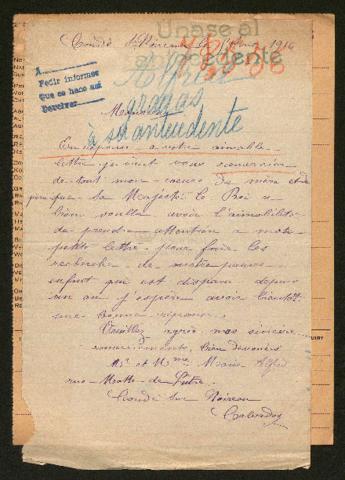 Unase al
antecedente
Condé s/Noireau le 1916
A
Pedir informes
que se hace así
Devolver
gracias
à su antecedente
Monsieur
En réponse à votre aimable
lettre je vient vous remercier
de tout mon coeur de même
que Sa Majesté le Roi a
bien voullu avoir l'aimabilité
de prendre attention à notre
petite lettre pour faire les
recherche de notre pauvre
enfant qui est disparu depuis
un an j'espère avoir bientôt
une bonne réponse.
Veuillez agréé nos sincère
remerciements, bien dévoués
Mr et Mme Marie Alfred
rue Motte de
Condé sur Noireau
Calvados